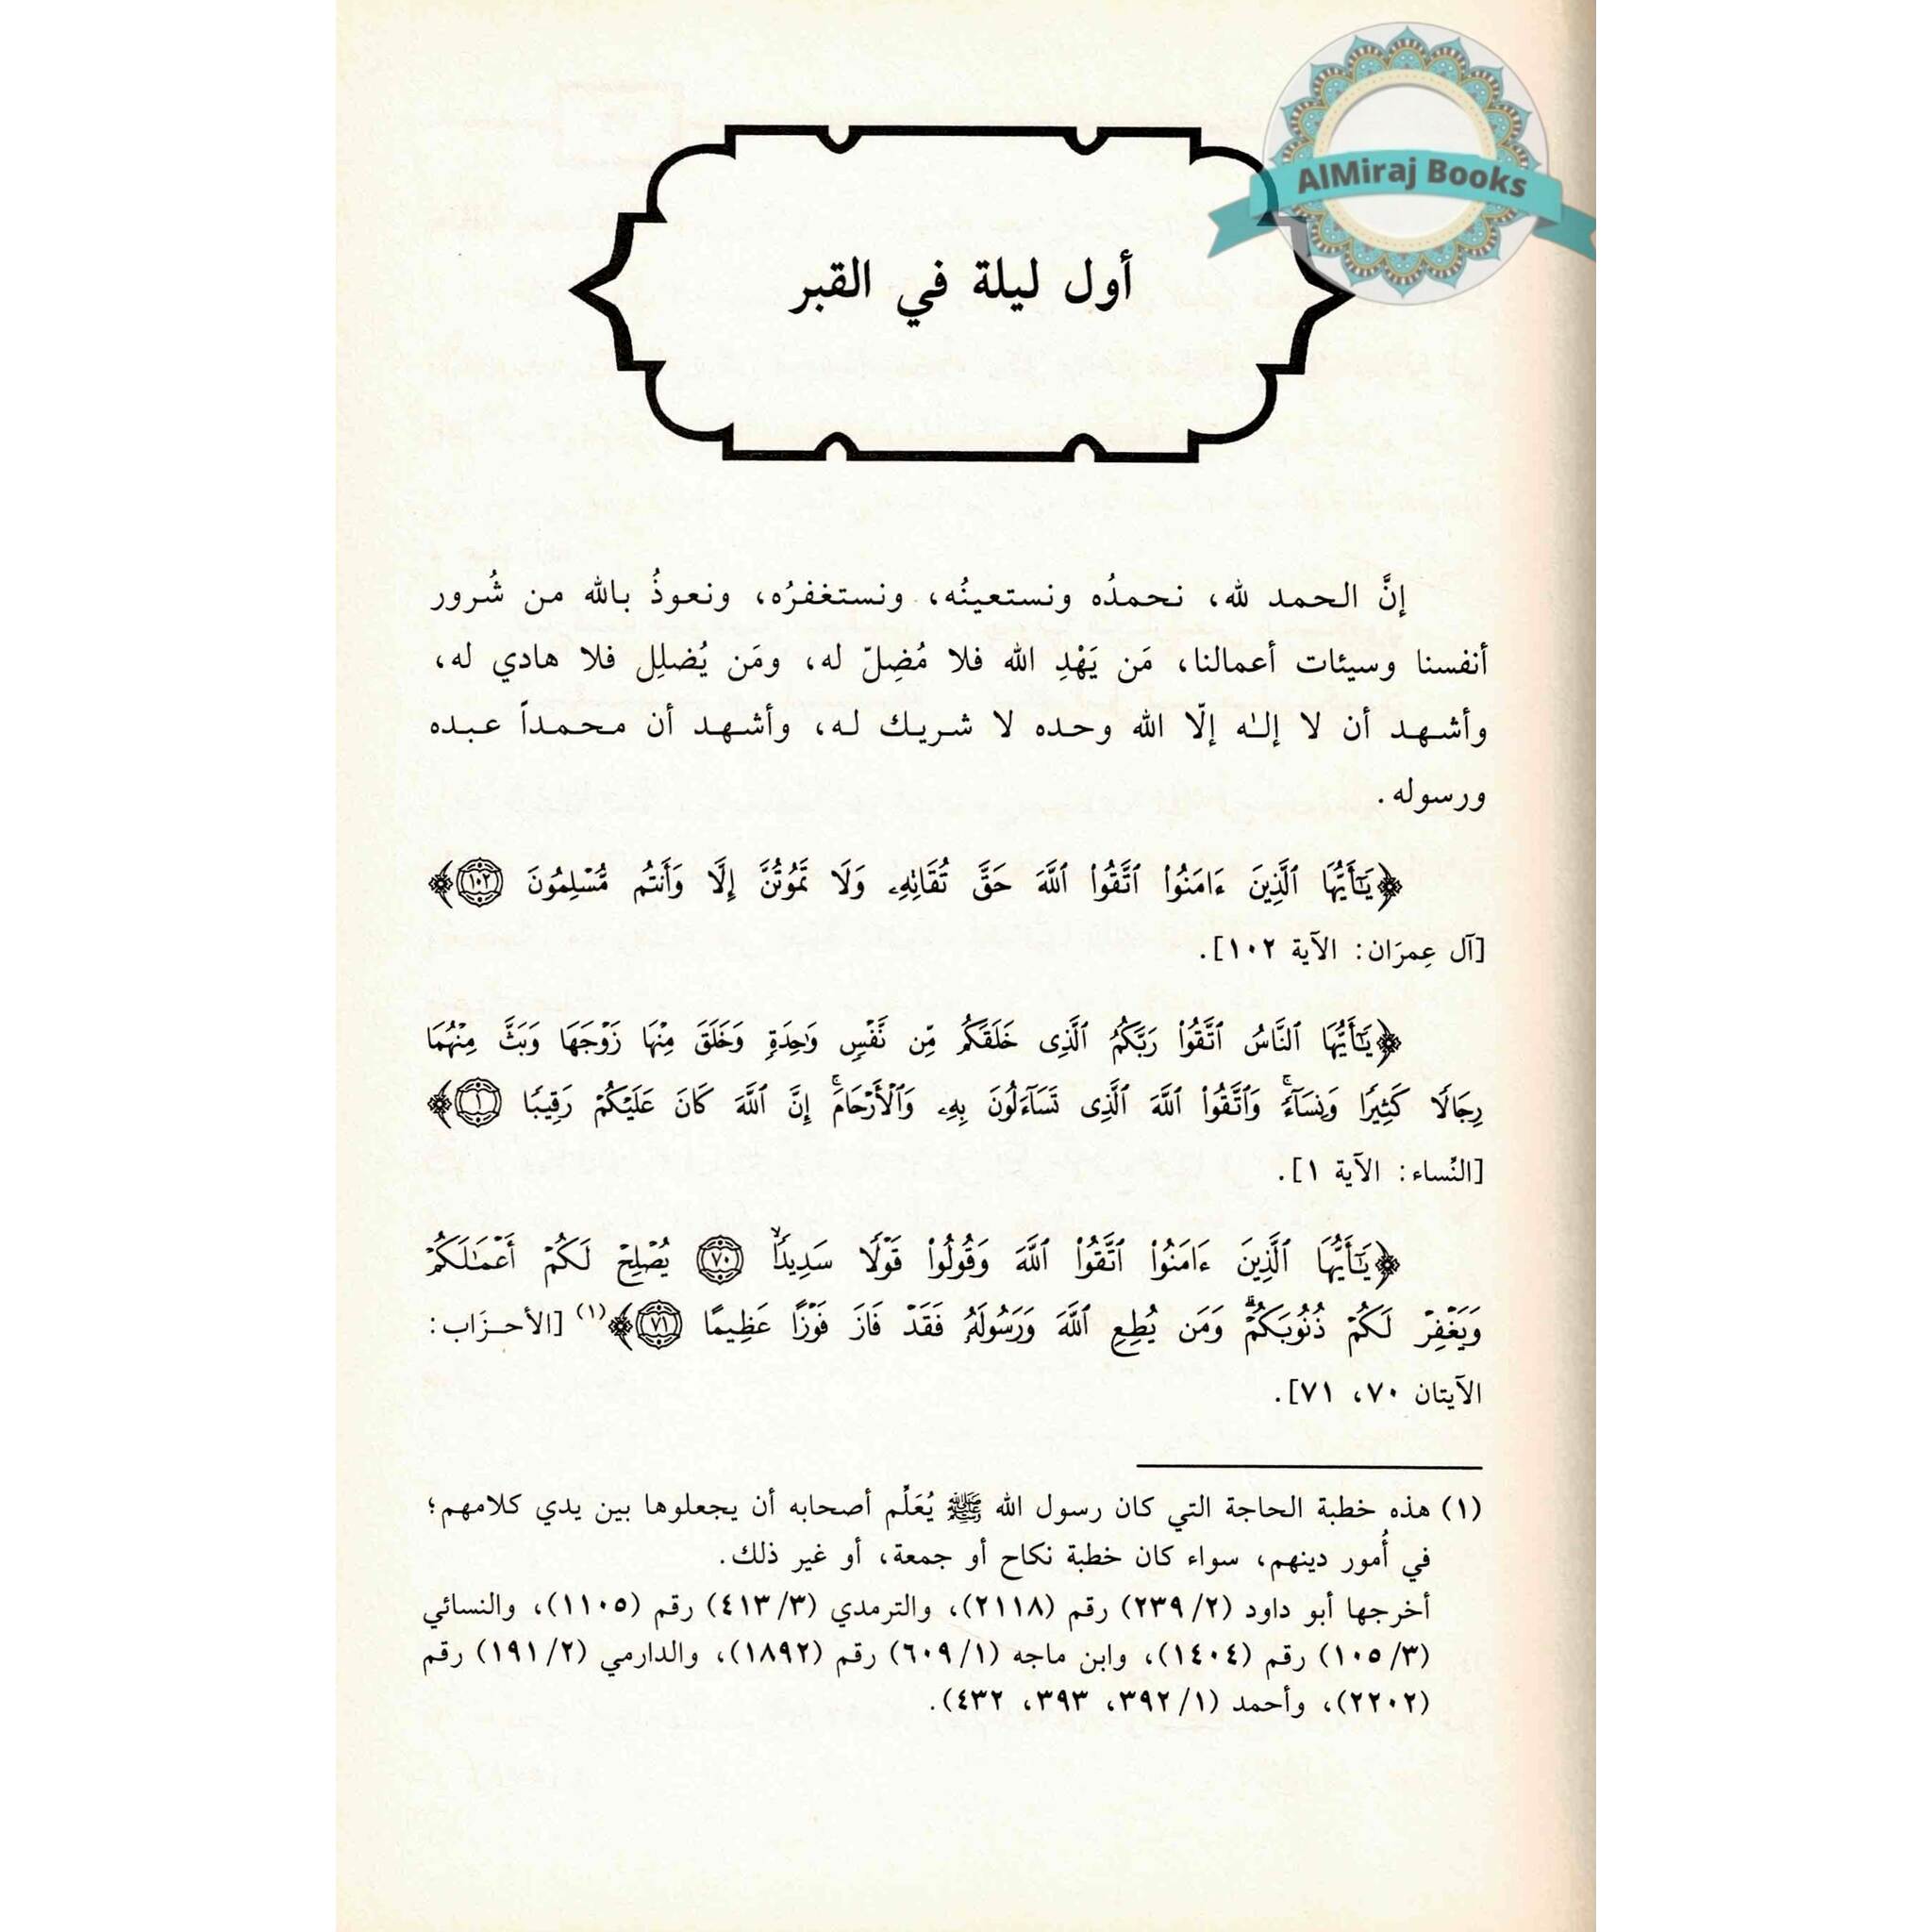 AlMiraj Books
أول ليلة في القبر
إنَّ الحمد لله، نحمدُه ونستعينُه، ونستغفرُه، ونعوذُ بالله من شُرور
أنفسنا وسيئات أعمالنا، مَن يَهْدِ الله فلا مُضِلّ له، ومَن يُضلِل فلا هادي له،
وأشهد أن لا إلٰه إلّا الله وحده لا شريك له، وأشهد أن محمداً عبده
ورسوله.
﴿يَٰٓأَيُّهَا ٱلَّذِينَ ءَامَنُوا۟ ٱتَّقُوا۟ ٱللَّهَ حَقَّ تُقَانِهِۦ وَلَا تَمُوتُنَّ إِلَّا وَأَنتُم مُّسْلِمُونَ ١٠٢﴾
[آل عِمرَان: الآية ١٠٢].
﴿يَٰٓأَيُّهَا ٱلنَّاسُ ٱتَّقُوا۟ رَبَّكُمُ ٱلَّذِى خَلَقَكُم مِّن نَّفْسٍ وَٰحِدَةٍ وَخَلَقَ مِنْهَا زَوْجَهَا وَبَثَّ مِنْهُمَا
رِجَالًا كَثِيرًا وَنِسَآءً ۚ وَٱتَّقُوا۟ ٱللَّهَ ٱلَّذِى تَسَآءَلُونَ بِهِۦ وَٱلْأَرْحَامَ ۚ إِنَّ ٱللَّهَ كَانَ عَلَيْكُمْ رَقِيبًا ١﴾
[النِّساء: الآية ١].
﴿يَٰٓأَيُّهَا ٱلَّذِينَ ءَامَنُوا۟ ٱتَّقُوا۟ ٱللَّهَ وَقُولُوا۟ قَوْلًا سَدِيدًا ۙ ٧٠ يُصْلِحْ لَكُمْ أَعْمَٰلَكُمْ
وَيَغْفِرْ لَكُمْ ذُنُوبَكُمْ ۗ وَمَن يُطِعِ ٱللَّهَ وَرَسُولَهُۥ فَقَدْ فَازَ فَوْزًا عَظِيمًا ٧١﴾(١) [الأحزَاب:
الآيتان ٧٠، ٧١].
(١) هذه خطبة الحاجة التي كان رسول الله ﷺ يُعَلِّم أصحابه أن يجعلوها بين يدي كلامهم؛
في أُمور دينهم، سواء كان خطبة نكاح أو جمعة، أو غير ذلك.
أخرجها أبو داود (٢/٢٣٩) رقم (٢١١٨)، والترمدي (٣/٤١٣) رقم (١١٠٥)، والنسائي
(٣/١٠٥) رقم (١٤٠٤)، وابن ماجه (١/٦٠٩) رقم (١٨٩٢)، والدارمي (٢/١٩١) رقم
(٢٢٠٢)، وأحمد (١/٣٩٢، ٣٩٣، ٤٣٢).